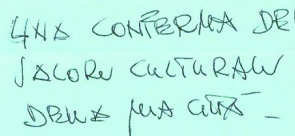 UNA CONFERMA DEI
VALORI CULTURALI
DELLA MIA CITTÀ -